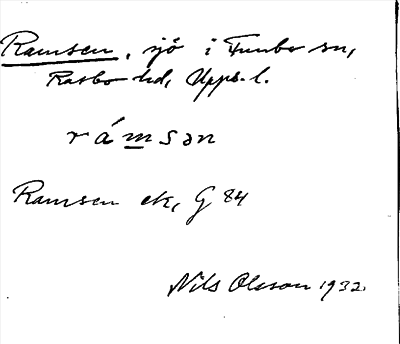 Ramsen, sjö i Funbo sn,
Rasbo hd, Upps. l.
rámsən
Ramsen ek, G 84
Nils Olsson 1932.